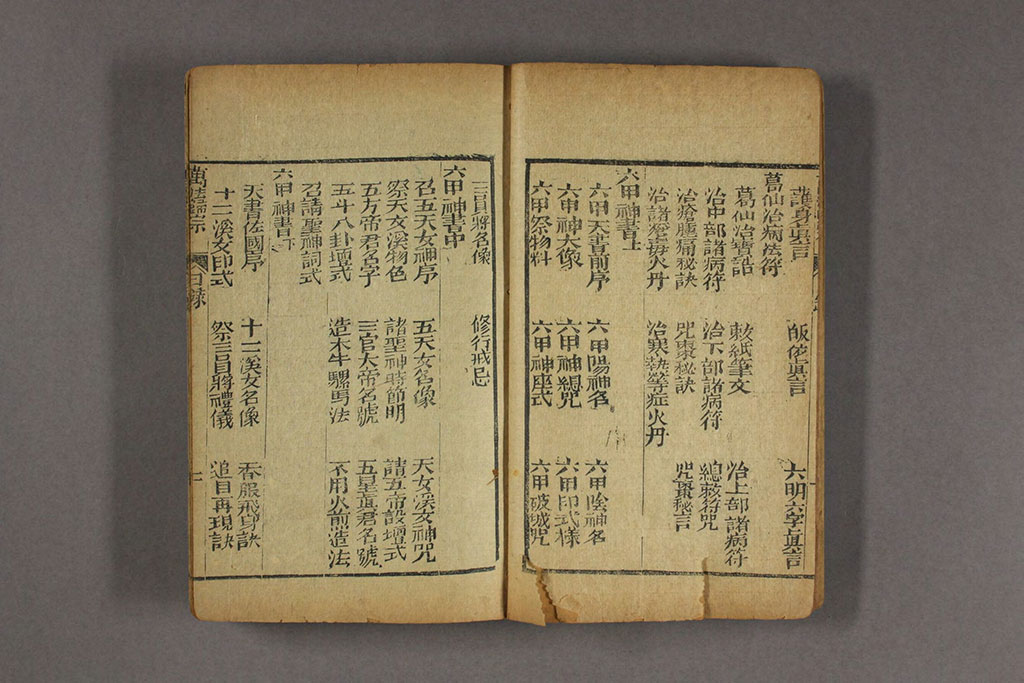 護身眞言 皈依眞言 六明六字眞言
葛仙治病法符
葛仙治寶誥 敕紙筆文 治上部諸病符
治中部諸病符 治下部諸病符 總敕符咒
治瘡腫痛秘訣 咒棗秘訣 咒棗秘言
治諸瘡毒火丹 治寒熱等症火丹
六甲神書上
六甲天書前序 六甲陽神名 六甲陰神名
六甲神大像 六甲神總咒 六甲印式樣
六甲祭物料 六甲神座式 六甲破城咒
三員將名像 修行戒忌
六甲神書中
召五天女神序 五天女名像 天女溪女神咒
祭天女溪物色 諸聖神時節明 請五帝設壇式
五方帝君名字 三官大帝名號 五星眞君名號
五斗八卦壇式 造木牛騾馬法 不用火煎造法
召請聖神詞式
六甲神書下
天書佐國序 十二溪女名像 香服飛身訣
十二溪女印式 祭三員將禮儀 追目再現訣
萬法歸宗 目錄 二